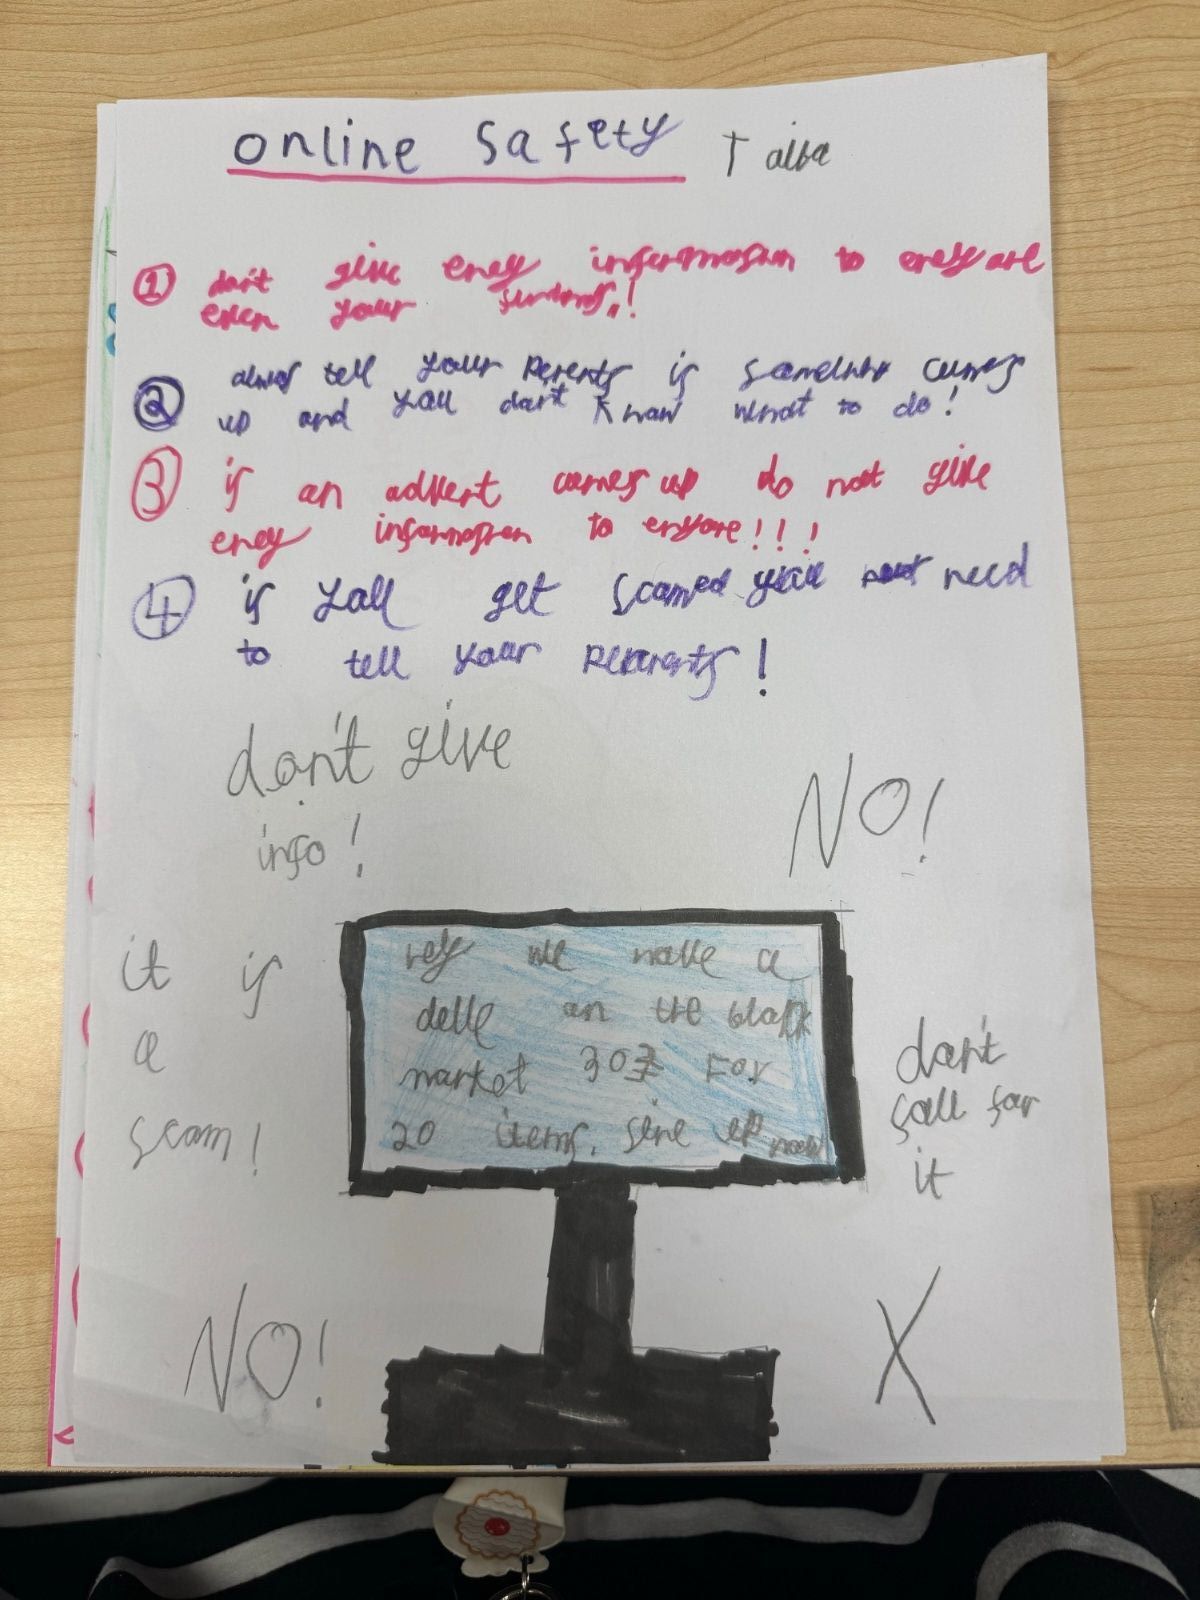 online safety Taiba
① don't give eney informosion to eneyone
even your !
② tell your perents if comes
up and you don't know what to do!
③ if an advert comes up do not give
eney informosion to enyone!!!
④ if you get scamed you need
to tell your pererents!
don't give
info!
NO!
it is
a
scam!
hey we make a
delle on the black
market 30£ For
20 items. sine up now
don't
fall for
it
NO!
X